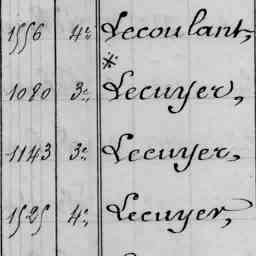 1556 4e, Lecoulant,
*
1080 3e, Lecuyer,
1143 3e, Lecuyer,
1525 4e, Lecuyer,